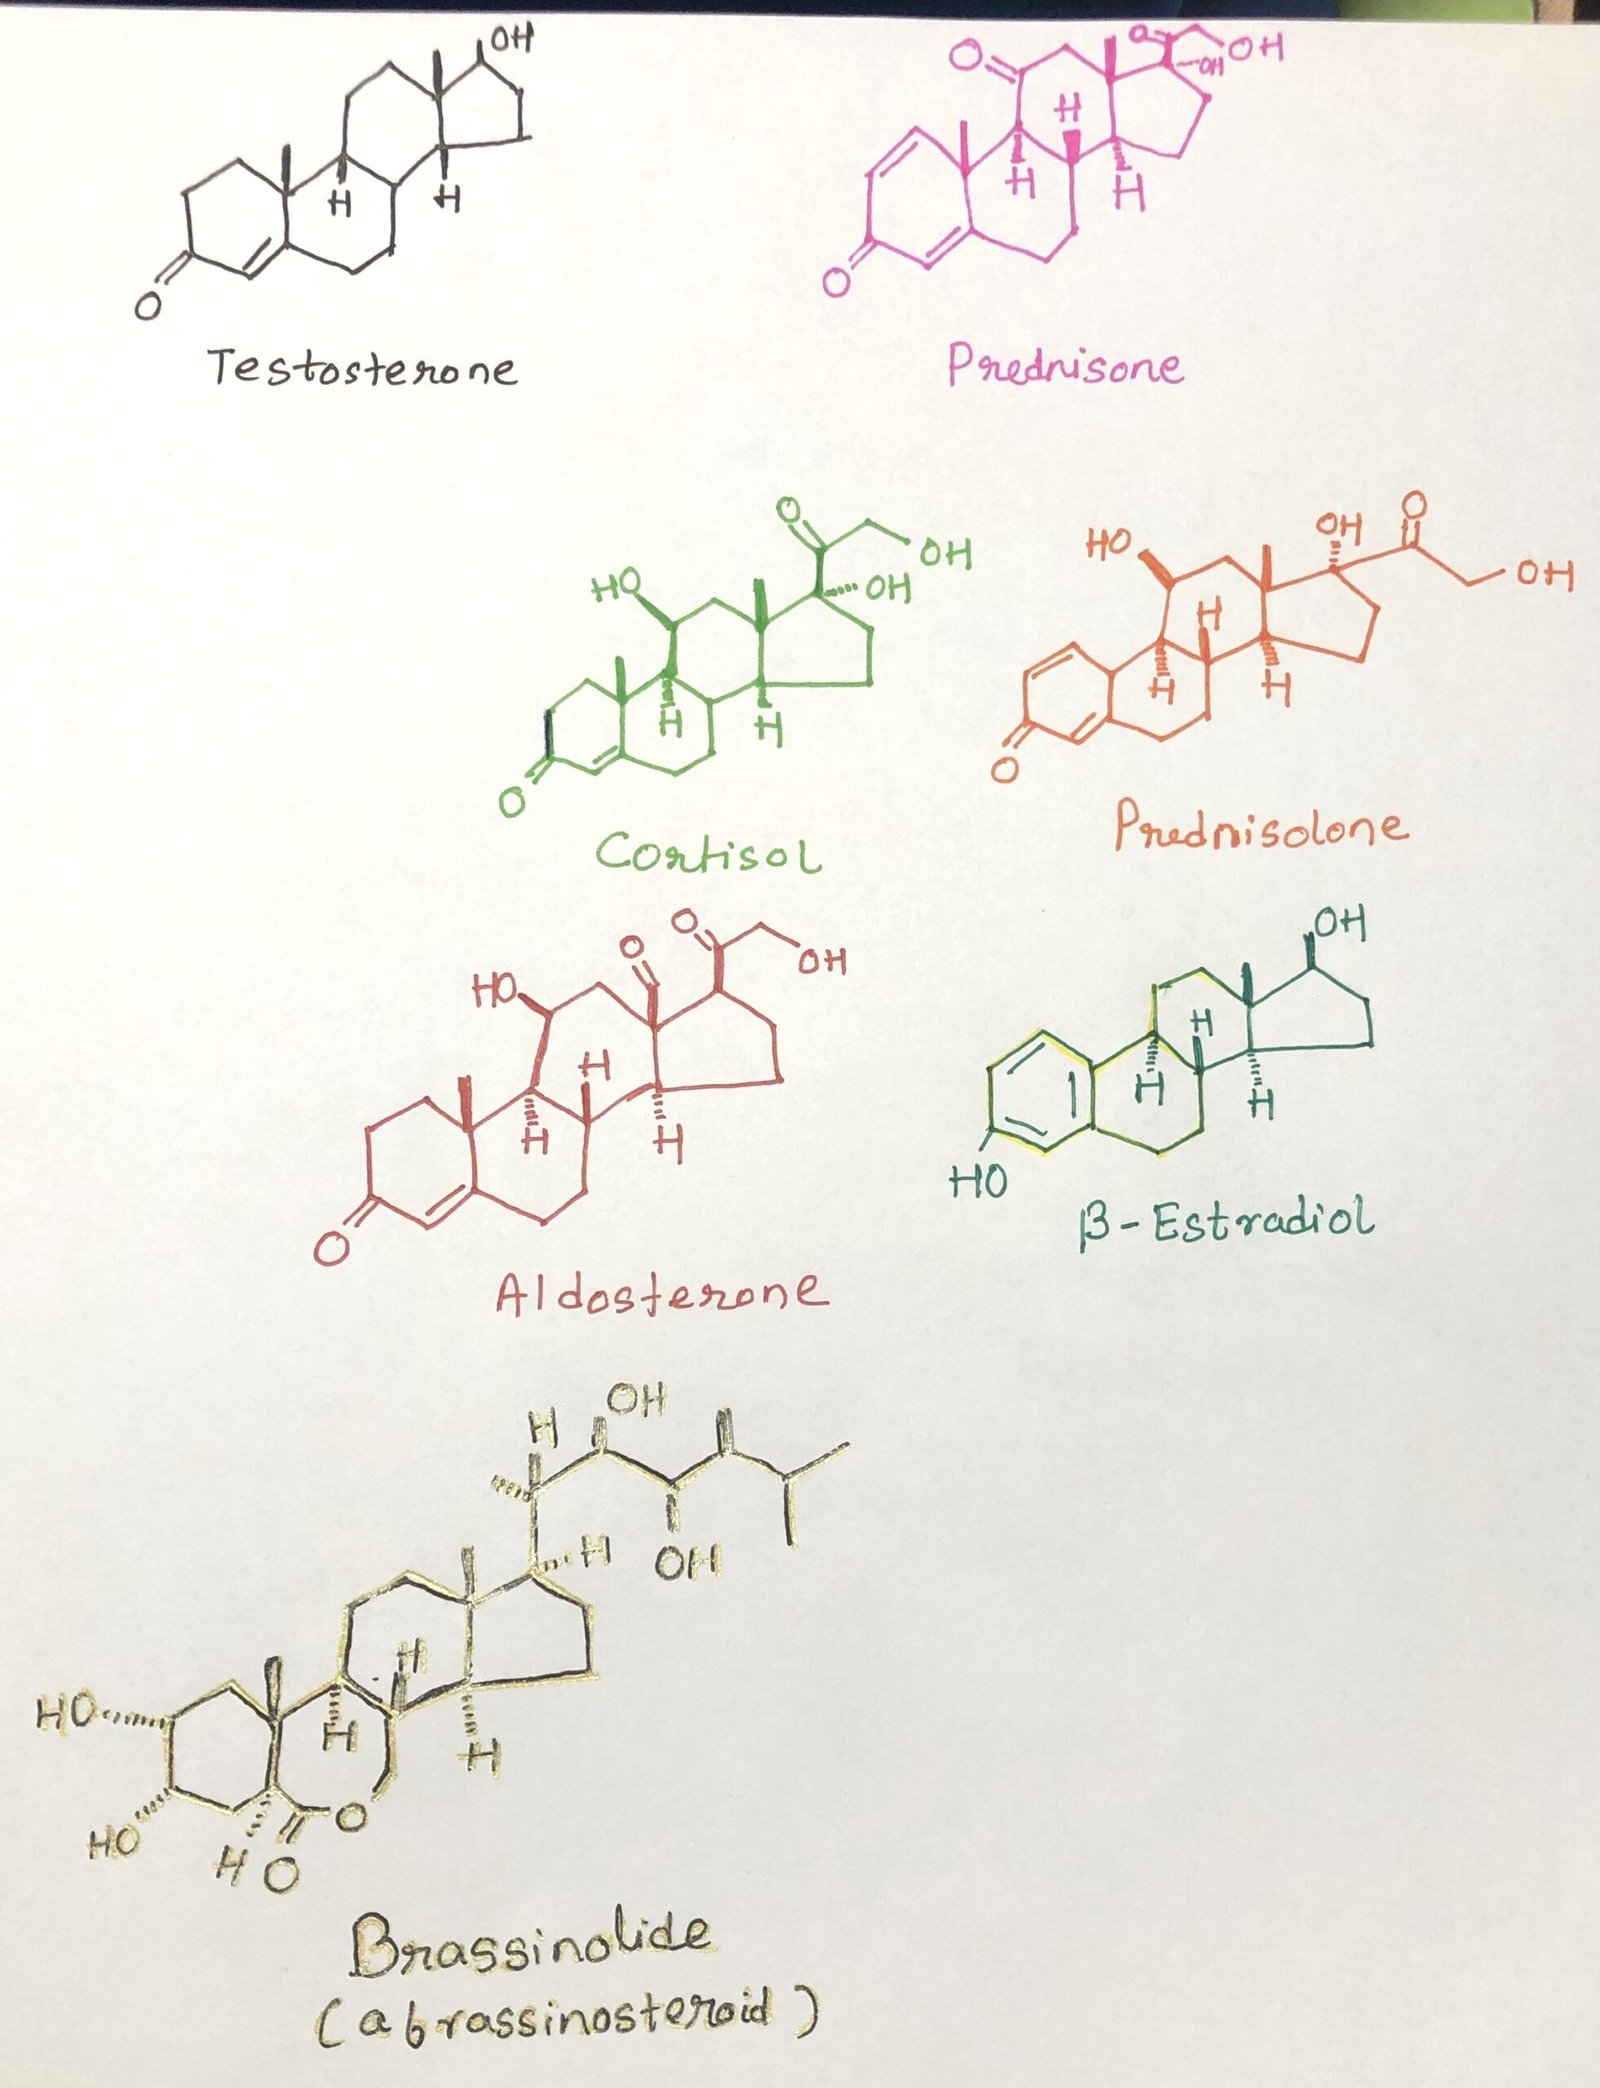 OH
H
H
O
Testosterone
O
O
OH
OH
H
H
H
O
Prednisone
O
OH
HO
OH
H
H
O
Cortisol
HO
OH
O
OH
H
H
H
O
Prednisolone
O
O
OH
HO
H
H
H
O
Aldosterone
OH
H
H
H
HO
β-Estradiol
OH
H
H
OH
H
HO
H
H
HO
H
O
O
Brassinolide
(a brassinosteroid)